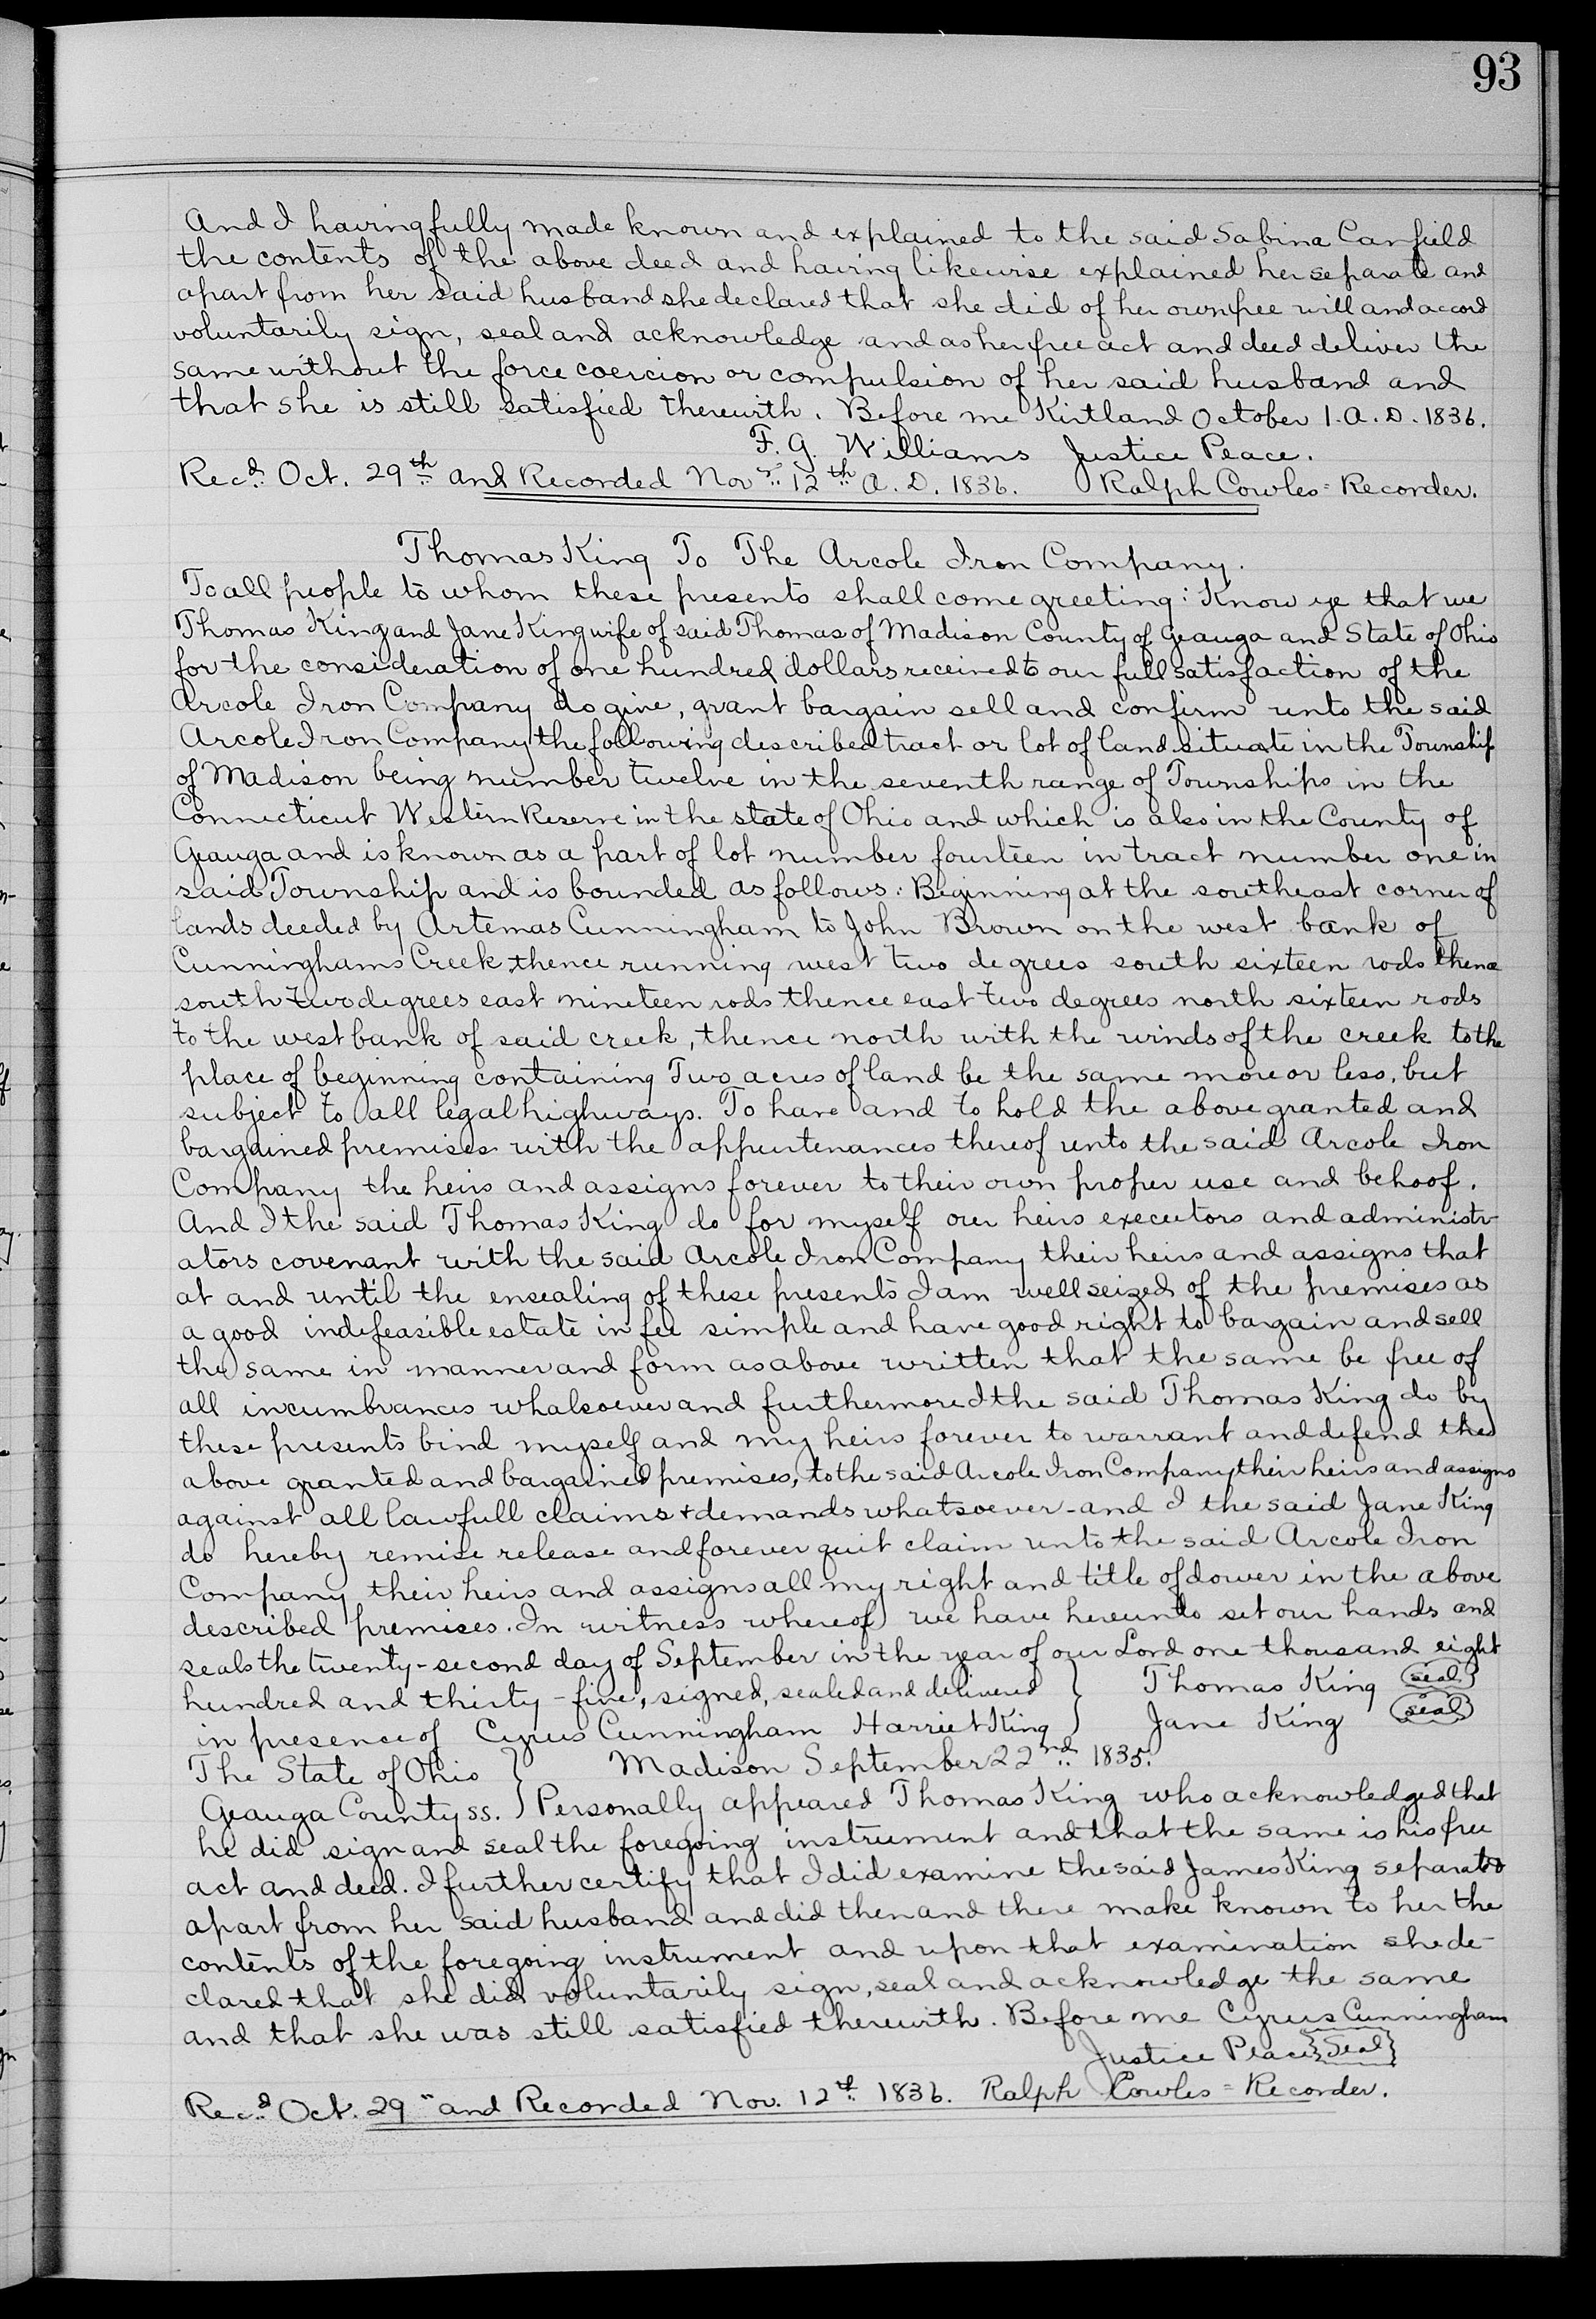 93
And I having fully made known and explained to the said Sabina Canfield
the contents of the above deed and having likewise explained her separate and
apart from her said husband she declared that she did of her own free will and accord
voluntarily sign, seal and acknowledge and as her free act and deed deliver the
same without the force coercion or compulsion of her said husband and
that she is still satisfied therewith. Before me Kirtland October 1. A.D. 1836.
F. G. Williams Justice Peace.
Recd. Oct. 29th and Recorded Nov. 12th A. D. 1836. Ralph Cowles = Recorder.
Thomas King To The Arcole Iron Company.
To all people to whom these presents shall come greeting: Know ye that we
Thomas King and Jane King wife of said Thomas of Madison County of Geauga and State of Ohio
for the consideration of one hundred dollars received to our full satisfaction of the
Arcole Iron Company do give, grant bargain sell and confirm unto the said
Arcole Iron Company the following described tract or lot of land situate in the Township
of Madison being number twelve in the seventh range of Townships in the
Connecticut Western Reserve in the state of Ohio and which is also in the County of
Geauga and is known as a part of lot number fourteen in tract number one in
said Township and is bounded as follows: Beginning at the southeast corner of
lands deeded by Artemas Cunningham to John Brown on the west bank of
Cunninghams Creek thence running west two degrees south sixteen rods thence
south two degrees east nineteen rods thence east two degrees north sixteen rods
to the west bank of said creek, thence north with the winds of the creek to the
place of beginning containing Two acres of land be the same more or less, but
subject to all legal highways. To have and to hold the above granted and
bargained premises with the appurtenances thereof unto the said Arcole Iron
Company the heirs and assigns forever to their own proper use and behoof.
And I the said Thomas King do for myself our heirs executors and administr-
ators covenant with the said Arcole Iron Company their heirs and assigns that
at and until the ensealing of these presents I am well seized of the premises as
a good indefeasible estate in fee simple and have good right to bargain and sell
the same in manner and form as above written that the same be free of
all incumbrances whalsoever and furthermore I the said Thomas King do by
these presents bind myself and my heirs forever to warrant and defend the
above granted and bargained premises, to the said Arcole Iron Company their heirs and assigns
against all lawfull claims + demands whatsoever - and I the said Jane King
do hereby remise release and forever quit claim unto the said Arcole Iron
Company their heirs and assigns all my right and title of dower in the above
described premises. In witness whereof we have hereunto set our hands and
seals the twenty-second day of September in the year of our Lord one thousand eight
hundred and thirty-five, signed, sealed and delivered } Thomas King (seal)
in presence of Cyrus Cunningham Harriet King } Jane King (seal)
The State of Ohio } Madison September 22nd. 1835.
Geauga County ss. } Personally appeared Thomas King who acknowledged that
he did sign and seal the foregoing instrument and that the same is his free
act and deed. I further certify that I did examine the said James King separate
apart from her said husband and did then and there make known to her the
contents of the foregoing instrument and upon that examination she de-
clared that she did voluntarily sign, seal and acknowledge the same
and that she was still satisfied therewith. Before me Cyrus Cunningham
Justice Peace {Seal}
Recd. Oct. 29" and Recorded Nov. 12th 1836. Ralph Cowles = Recorder.